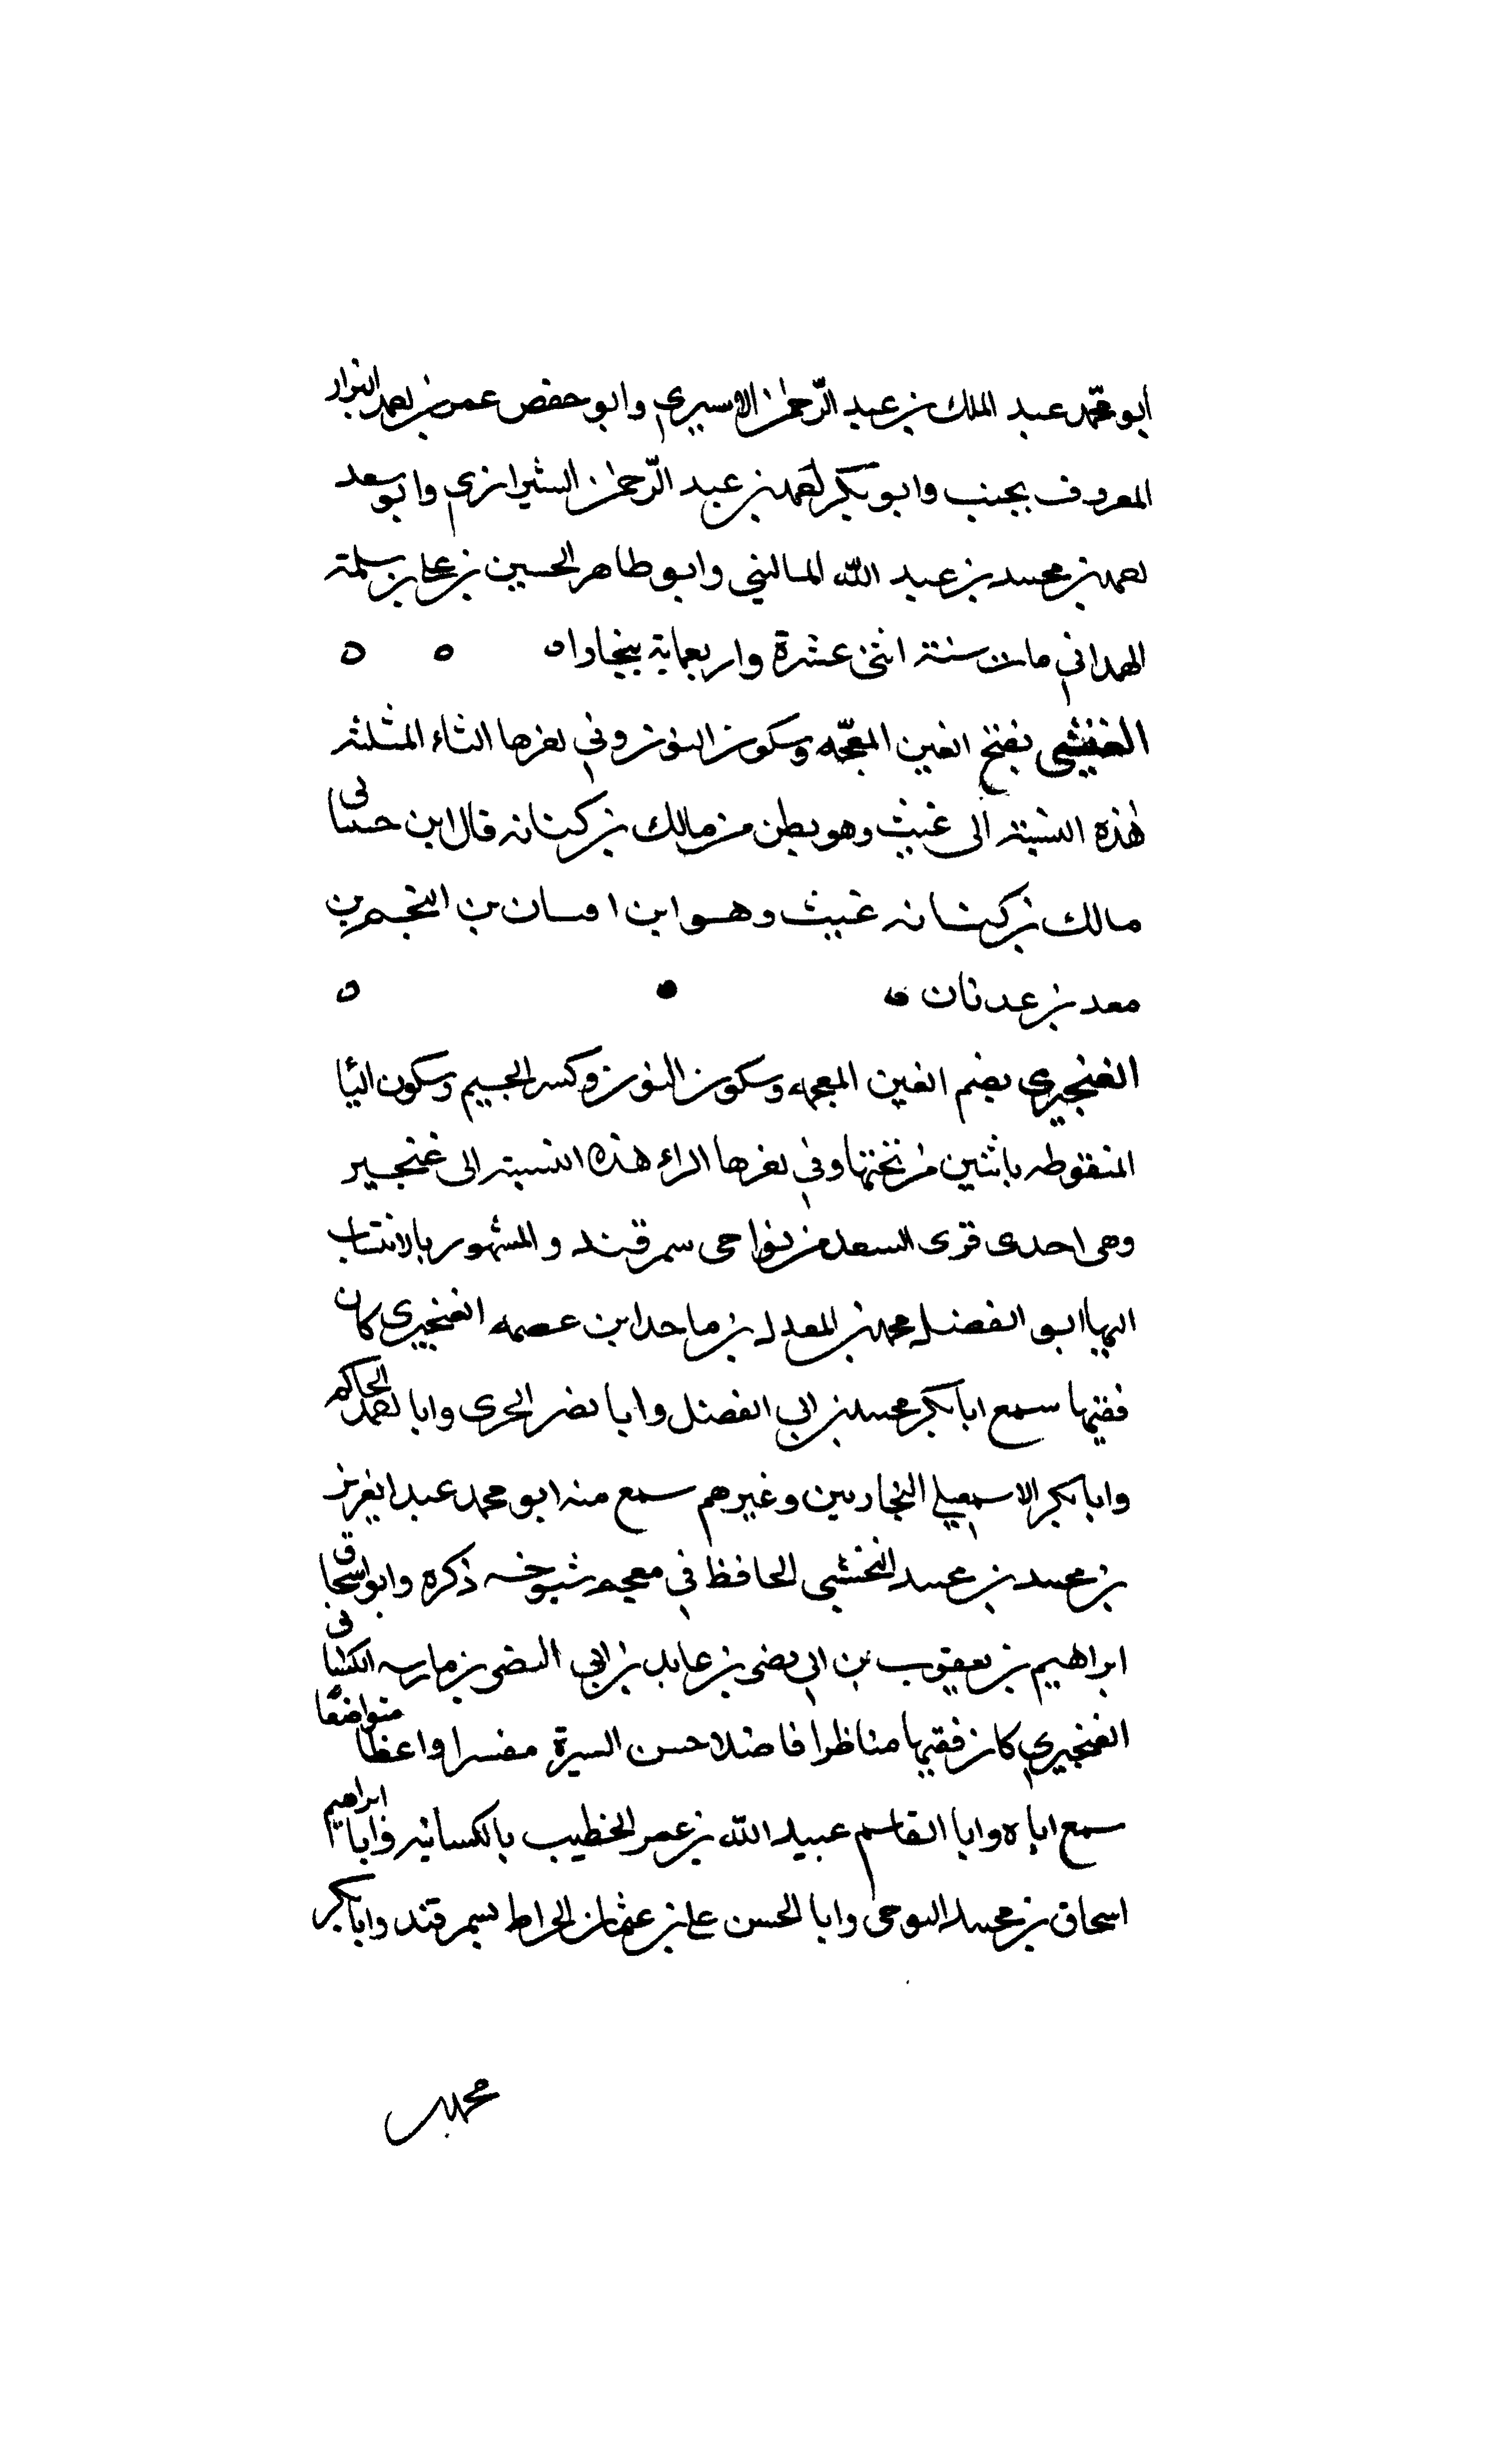 ابو محمد عبد الملك بن عبد الرحمن الاسبيري وابو حفص عمر بن احمد البزار
المعروف بجنب وابو بكر احمد بن عبد الرحمن الشيرازي وابو سعد
احمد بن محمد بن عبد الله الماليني وابو طاهر الحسين بن علي بن سلمة
الهمداني مات سنة اثنى عشرة واربعماية ببخارا ه ه ه
الغنثي بفتح الغين المعجمه وسكون النون وفي اخرها الثاء المثلثه
هذه النسبة الى غنث وهو بطن من مالك بن كنانه قال ابن
مالك بن كنانه غنث وهو ابن بن بن
معد بن عدنان ه
الغنجيري بضم الغين المعجمه وسكون النون وكسر الجيم وسكون اليا
المنقوطه باثنين من تحتها وفي اخرها الراء هذه النسبة الى غنجير
وهي احدى قرى السعد من نواحى سمرقند والمشهور بالانتساب
اليها ابو الفضل محمد بن المعدل بن ماحد ابن عصمه الغنجيري كان
فقيها سمع ابا بكر محمد بن ابي الفضل وابا نصر الحرى وابا احمد الحاكم
وابا بكر الاسمعيلي البخاريين وغيرهم سمع منه ابو محمد عبد العزيز
بن محمد بن محمد النخشبى الحافظ في معجم شيوخه ذكره وابو اسحاق
ابراهيم بن يعقوب بن ابي نصر بن عابد بن ابي النصر بن مارسه الكشانى
الغنجيري كان فقيها مناظرا فاضلا حسن السيرة مفسرا واعظا متواضعا
سمع اباه وابا القاسم عبيد الله بن عمر الخطيب بالكسانيه وابا ابراهيم
اسحاق بن محمد النوحى وابا الحسن علي بن عثمان الخراط بسمرقند وابا بكر
محمد بن